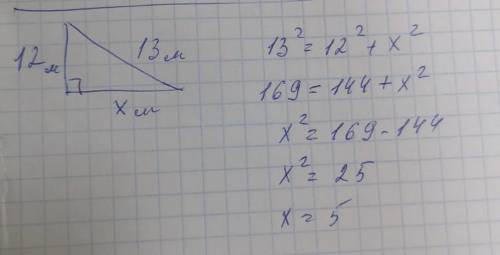 12м
13м
xм
13² = 12² + x²
169 = 144 + x²
x² = 169 - 144
x² = 25
x = 5